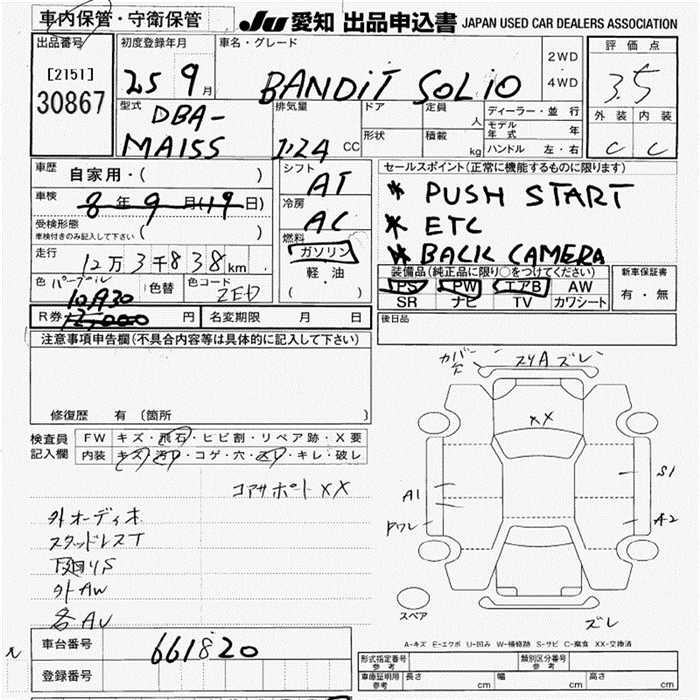 車内保管・守衛保管
JU 愛知 出品申込書 JAPAN USED CAR DEALERS ASSOCIATION
出品番号
[2151]
30867
初度登録年月
25 9 月
車名・グレード
BANDIT SOLIO
2WD
4WD
評価点
3.5
外装 内装
C C
型式
DBA-
MA15S
排気量
1.24 CC
ドア
定員
人
形状
積載
kg
ディーラー・並行
モデル年式 年
ハンドル 左・右
車歴
自家用・( )
車検
8 年 9 月(19日)
受検形態
車検付きのみ記入して下さい ( )
走行
12万3千838km
色 パープル
色替
色コード
ZED
R券
10430
12,000 円
名変期限 月 日
シフト
AT
冷房
AC
燃料
ガソリン
軽・油
( )
セールスポイント(正常に機能するものに限ります)
* PUSH START
* ETC
* BACK CAMERA
装備品(純正品に限り○をつけてください)
PS PW エアB AW
SR ナビ TV カワシート
新車保証書
有・無
後日品
注意事項申告欄(不具合内容等は具体的に記入して下さい)
修復歴 有 (箇所 )
検査員
記入欄
FW キズ・飛石・ヒビ割・リペア跡・X要
内装 キズ・汚れ・コゲ・穴・スレ・キレ・破レ
コアサポート XX
外オーディオ
スタッドレスT
外AW
車台番号
661820
登録番号
カバー欠
スリA ズレ
XX
S1
A2
A1
スペア
ズレ
A-キズ E-エクボ U-凹み W-補修跡 S-サビ C-腐食 XX-交換済
形式指定番号 参考
類別区分番号 参考
車庫証明用 参考 長さ cm 幅 cm 高さ cm